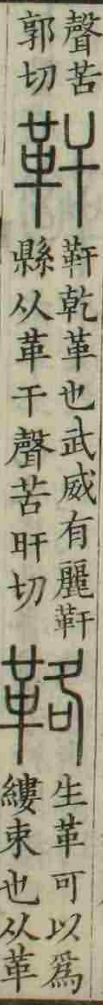 聲苦
郭切
靬
靬乾革也武威有麗靬
縣从革干聲苦旰切
生革可以爲
縷束也从革